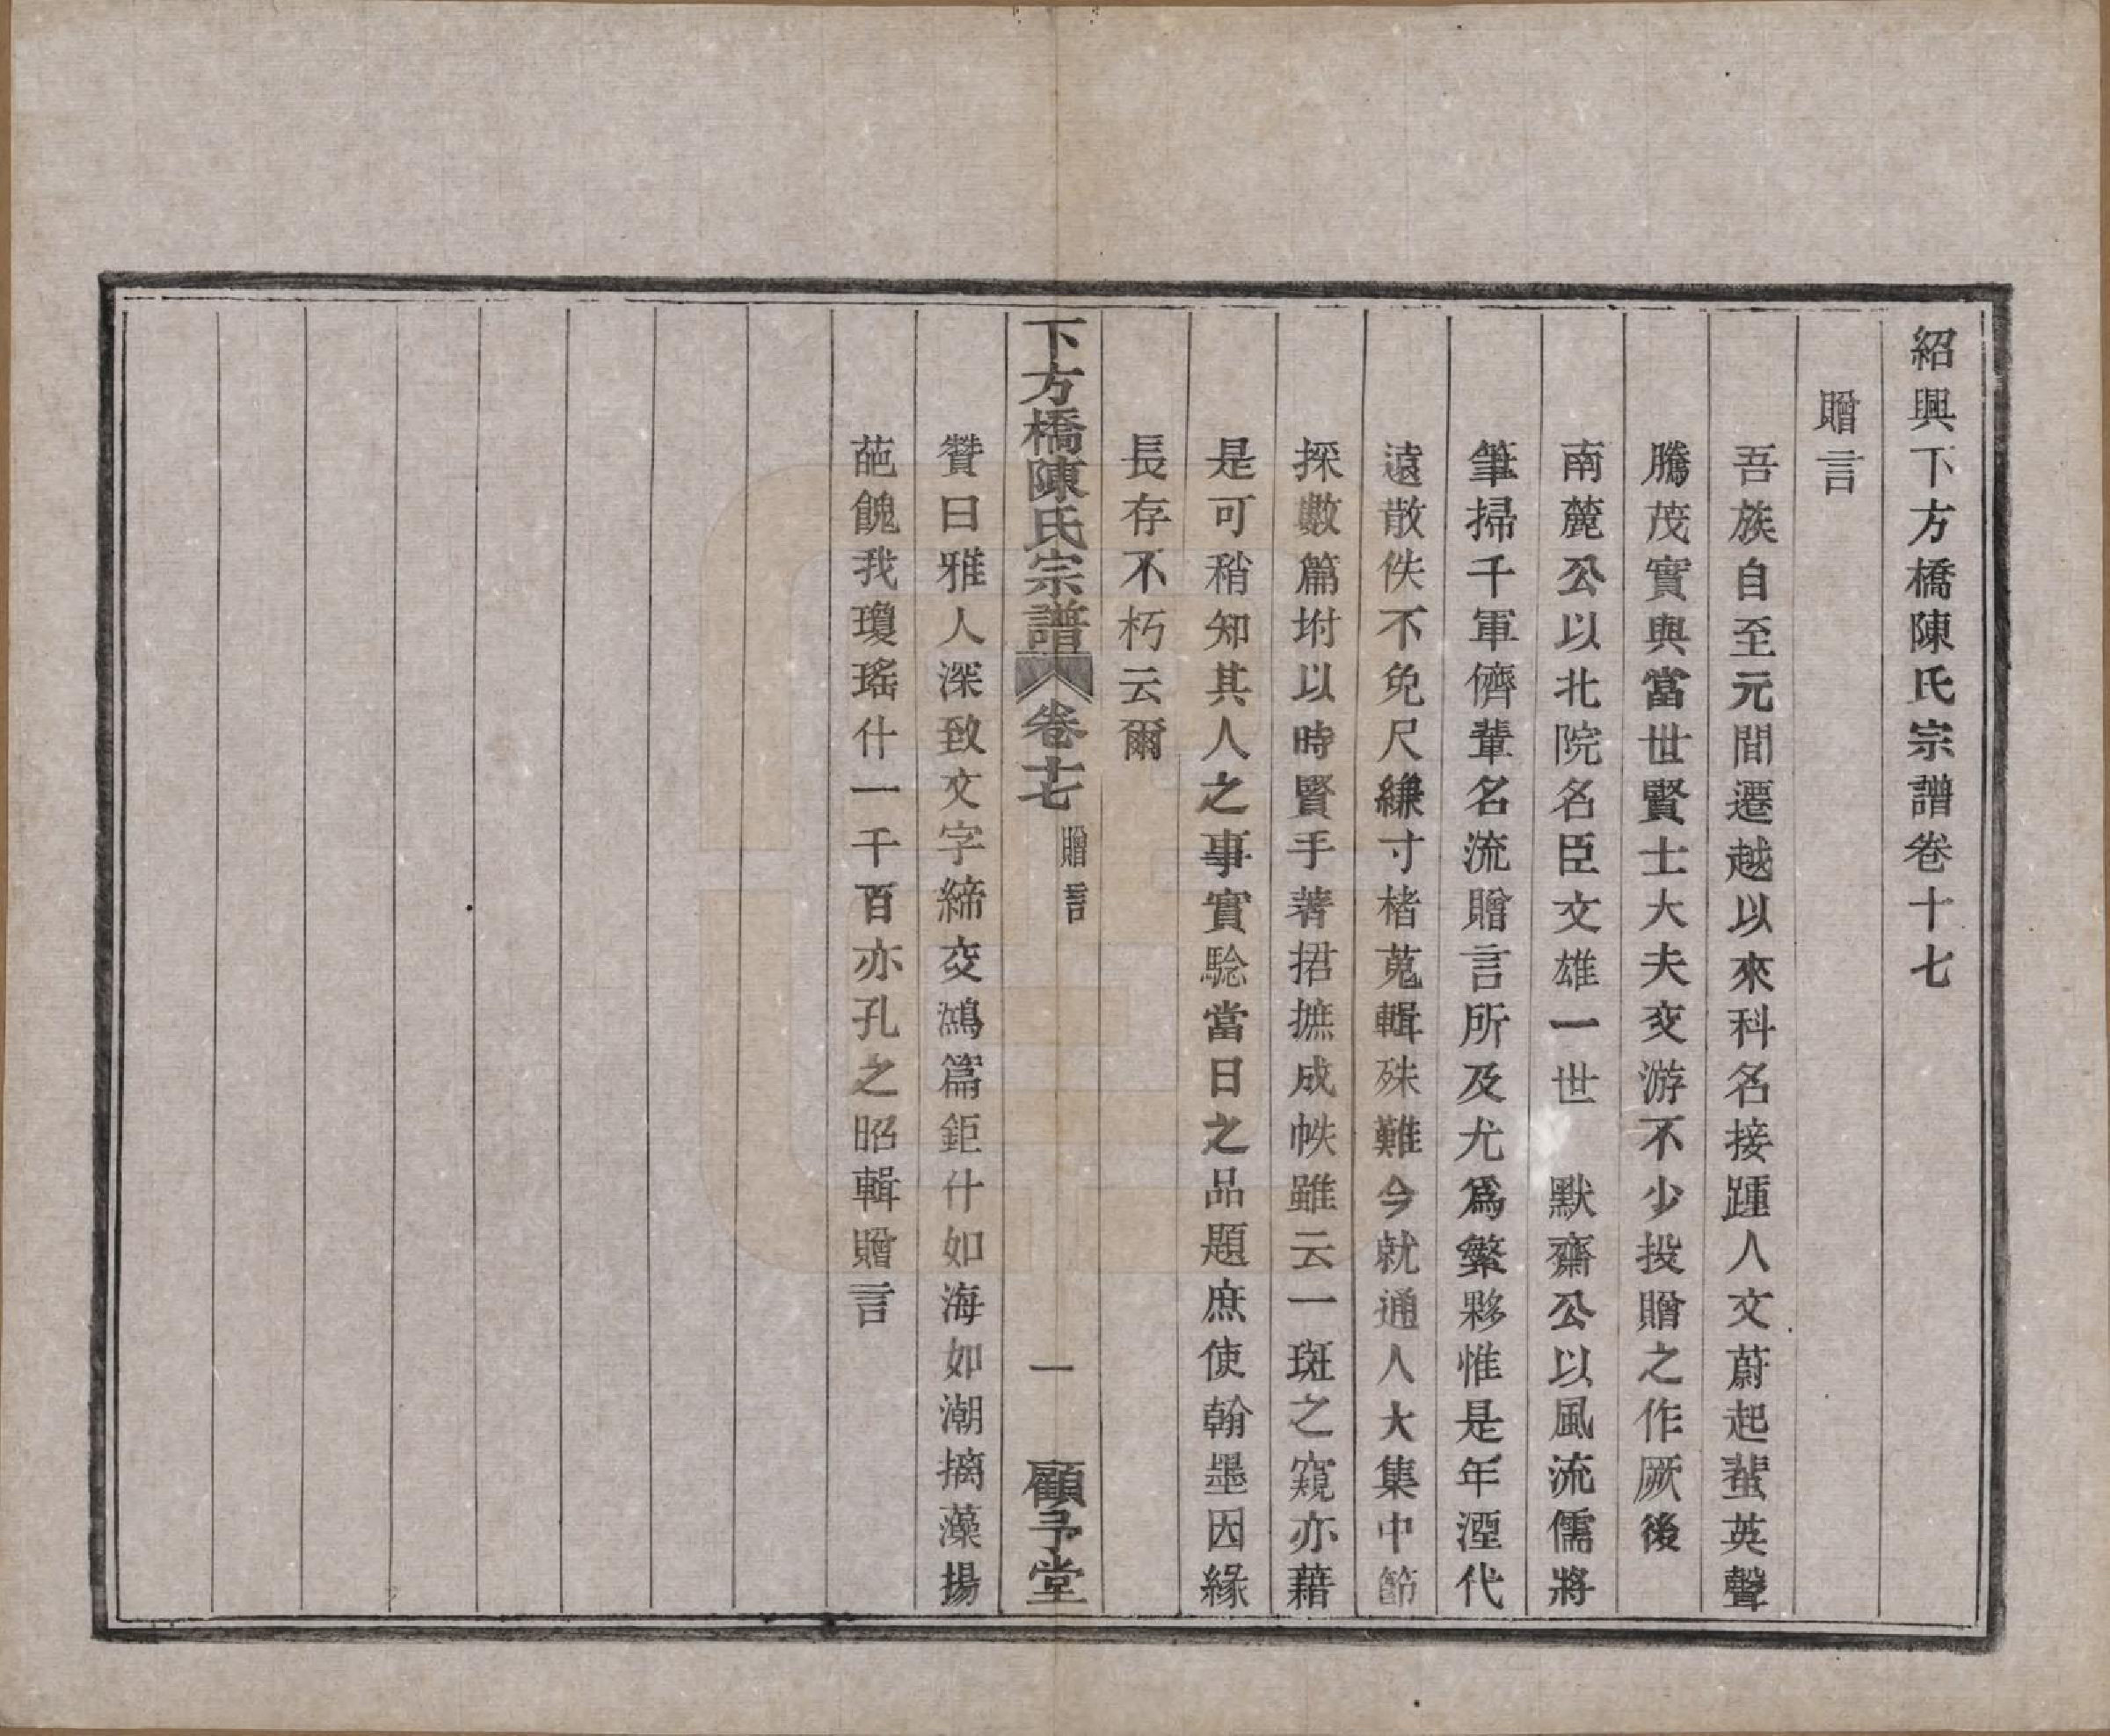 紹興下方橋陳氏宗譜卷十七
贈言
吾族自至元間遷越以來科名接踵人文蔚起蜚英聲
騰茂實與當世賢士大夫交游不少投贈之作厥後
南麓公以北院名臣文雄一世　默齋公以風流儒將
筆掃千軍儕輩名流贈言所及尤爲繁夥惟是年湮代
遠散佚不免尺縑寸楮蒐輯殊難今就通人大集中節
採數篇坿以時賢手著捃摭成帙雖云一斑之窺亦藉
是可稍知其人之事實騐當日之品題庶使翰墨因緣
長存不朽云爾
下方橋陳氏宗譜　卷十七　贈言　一　顧予堂
贊曰雅人深致文字締交鴻篇鉅什如海如潮摛藻揚
葩餽我瓊瑤什一千百亦孔之昭輯贈言